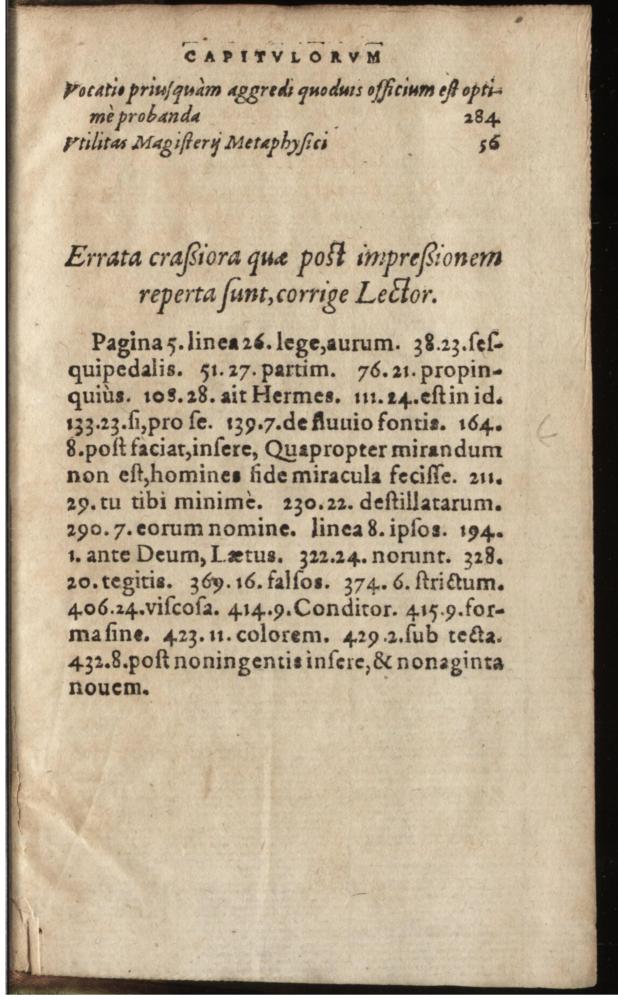 CAPITVLORVM
Vocatio priuſquàm aggredi quoduis officium eſt opti-
mè probanda 284
Vtilitas Magiſterij Metaphyſici 56
Errata craßiora quæ poſt impreßionem
reperta ſunt, corrige Lector.
Pagina 5. linea 26. lege, aurum. 38.23. ſeſ-
quipedalis. 51.27. partim. 76.21. propin-
quiùs. 108.28. ait Hermes. 111.24. eſt in id.
133.23. ſi, pro ſe. 139.7. de fluuio fontis. 164.
8. poſt faciat, inſere, Quapropter mirandum
non eſt, homines fide miracula feciſſe. 211.
29. tu tibi minimè. 230.22. deſtillatarum.
290.7. eorum nomine. linea 8. ipſos. 194.
1. ante Deum, Lætus. 322.24. norunt. 328.
20. tegitis. 369.16. falſos. 374.6. ſtrictum.
406.24. viſcoſa. 414.9. Conditor. 415.9. for-
ma ſine. 423.11. colorem. 429.2. ſub tecta.
432.8. poſt noningentis inſere, & nonaginta
nouem.